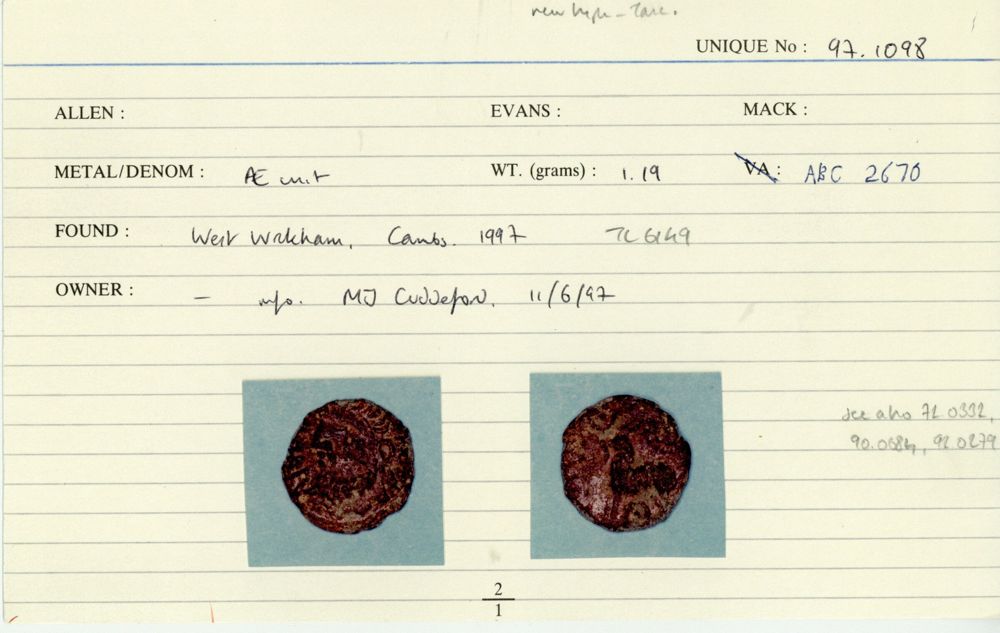 new type - Tasc.
UNIQUE No : 97.1098
ALLEN : EVANS : MACK :
METAL/DENOM : Æ unit WT. (grams) : 1.19 VA : ABC 2670
FOUND : West Wickham, Cambs. 1997 TL 6149
OWNER : – info. MJ Cuddeford, 11/6/97
see also 72.0332,
90.0684, 92.0279
2
1